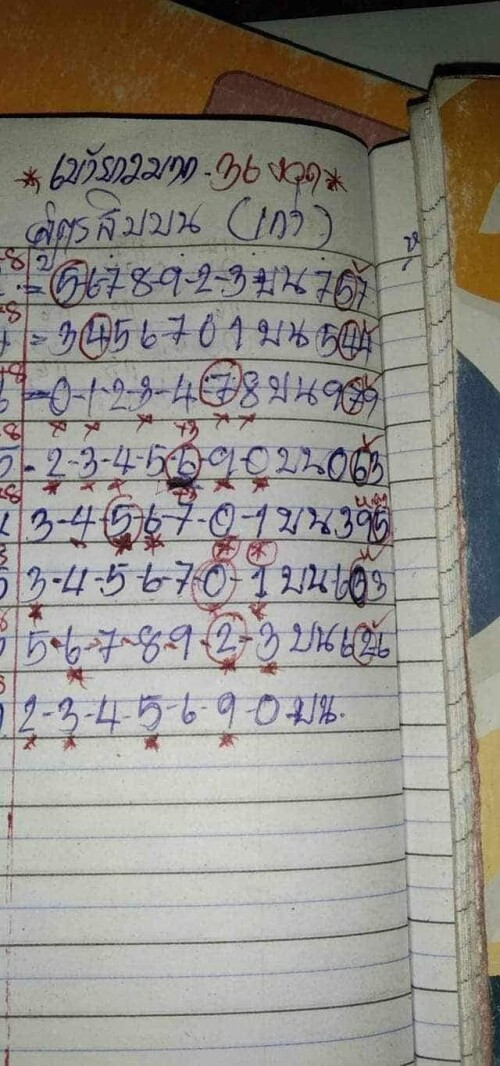 * เข้ายาวมาก. 36 งวด *
สูตรสิบบน (เก่า)
8 = 5678-9-2-3 บน 757
8 = 3456701 บน 544
8 -0-1-2-3-4-7-8 บน 979
8 5-2-3-4-5-6-9-0 บน 063
8 3-4-5-6-7-0-1 บน 395
5 3-4-5-6-7-0-1 บน 603
5-6-7-8-9-2-3 บน 626
2-3-4-5-6-9-0 บน.